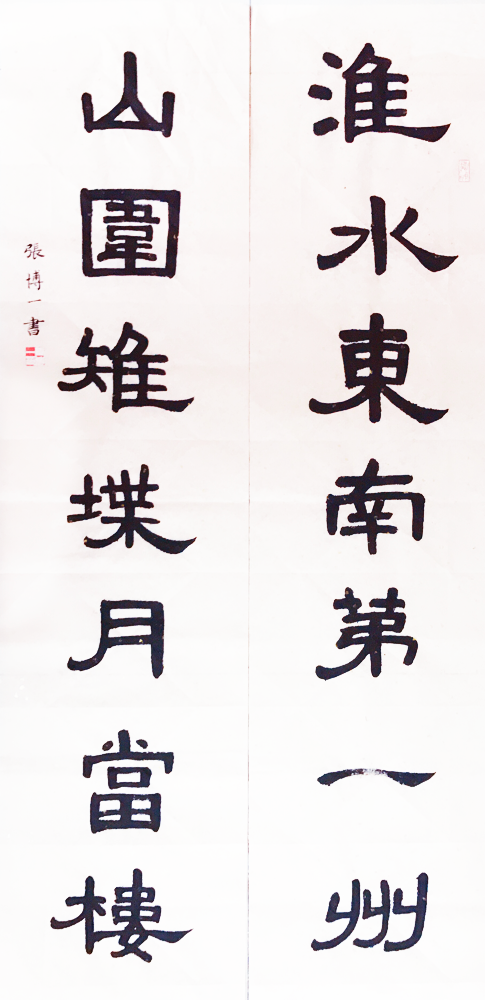 淮水東南第一州
山圍雉堞月當樓
張博一書